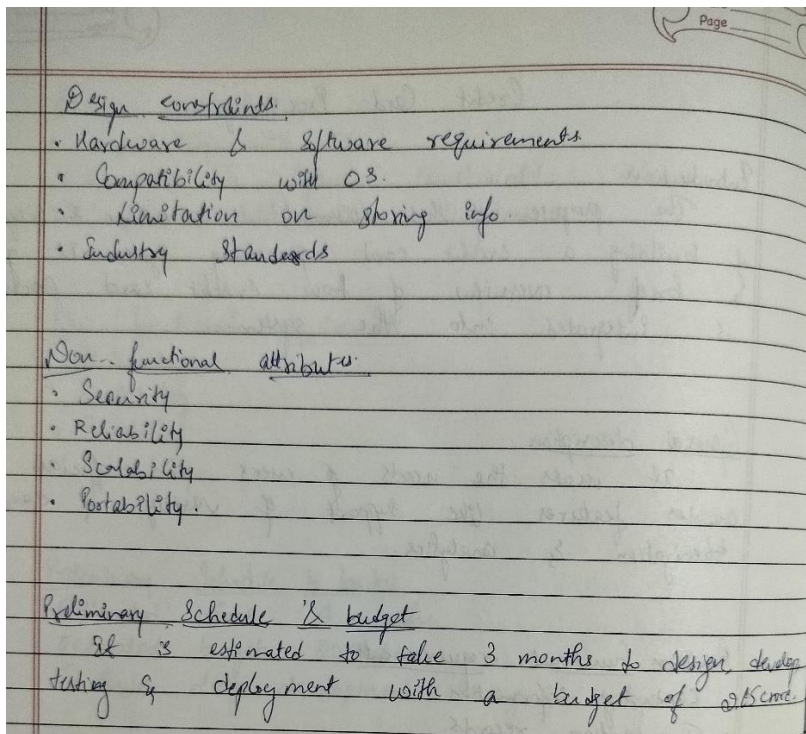 Page
Design constraints.
· Hardware & Software requirements
· Compatibility with OS.
· Limitation on storing info.
· Industry Standards
Non-functional attributes.
· Security
· Reliability
· Scalability
· Portability.
Preliminary Schedule & budget
It is estimated to take 3 months to design, develop
testing & deployment with a budget of